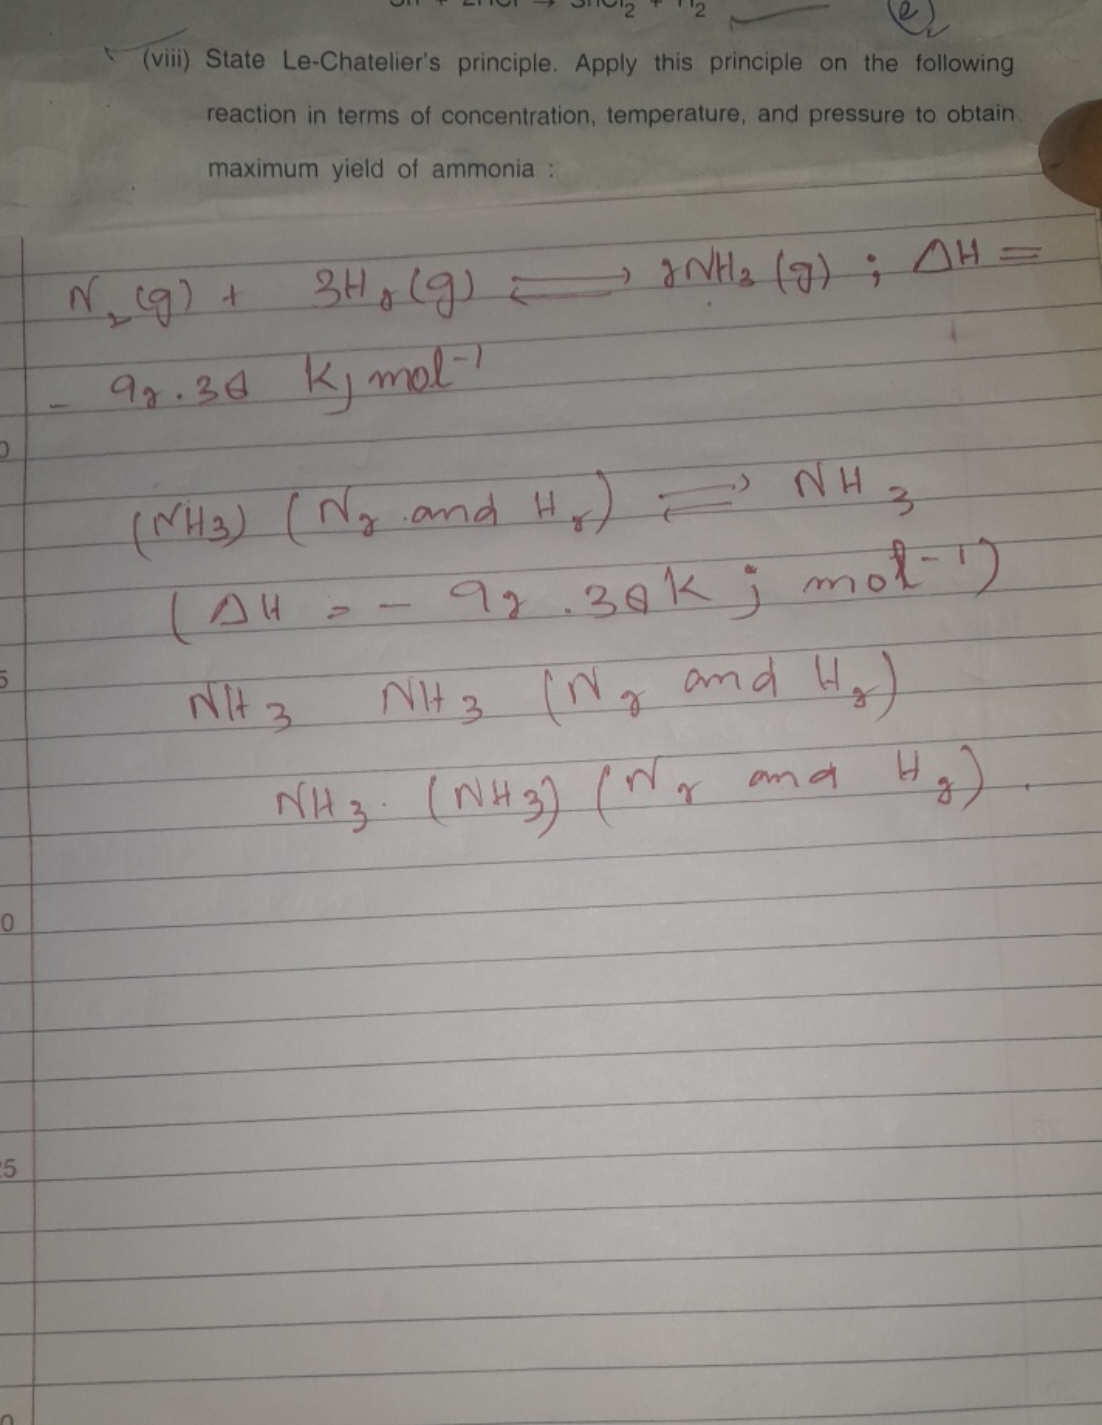 Sn + 2HCl → SnCl₂ + H₂
(e)
(viii) State Le-Chatelier's principle. Apply this principle on the following
reaction in terms of concentration, temperature, and pressure to obtain
maximum yield of ammonia :
N₂(g) + 3H₂(g) ⇌ 2NH₃(g) ; ΔH =
- 92.38 kj mol⁻¹
(NH₃) (N₂ and H₂) ⇌ NH₃
(ΔH = - 92.38 kj mol⁻¹)
NH₃ NH₃ (N₂ and H₂)
NH₃. (NH₃) (N₂ and H₂).
5
0
25